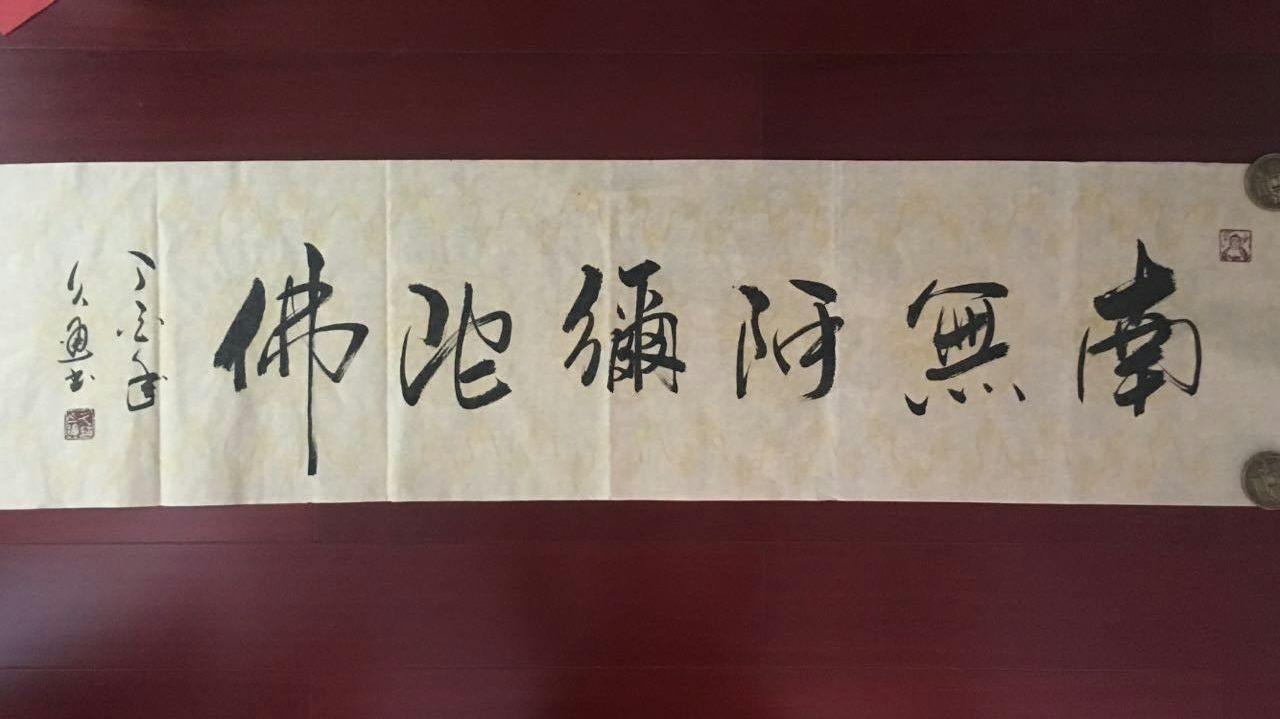 南無阿彌陀佛
丁酉年
久遠書